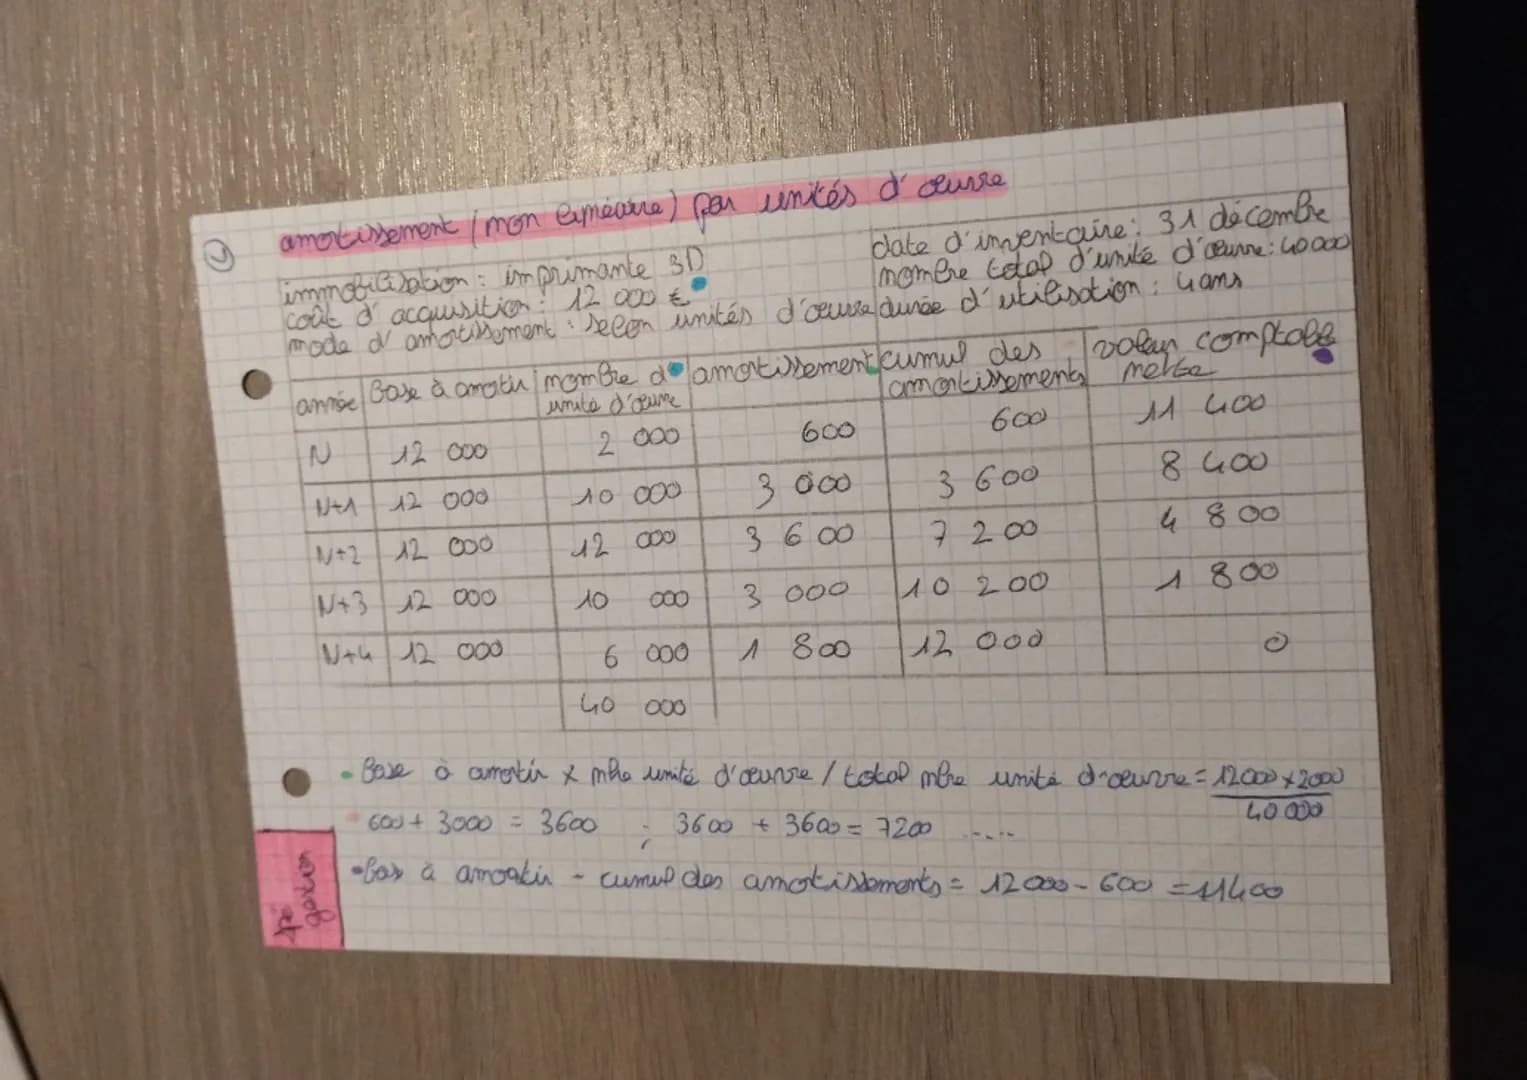 amortissement (non linéaire) par unités d'œuvre
immobilisation : imprimante 3D
coût d'acquisition : 12 000 €
mode d'amortissement : selon unités d'œuvre
date d'inventaire : 31 décembre
nombre total d'unité d'œuvre : 40 000
durée d'utilisation : 4 ans
année Base à amortir nombre d' unité d'œuvre amortissement cumul des amortissements valeur comptable nette
N 12 000 2 000 600 600 11 400
N+1 12 000 10 000 3 000 3 600 8 400
N+2 12 000 12 000 3 600 7 200 4 800
N+3 12 000 10 000 3 000 10 200 1 800
N+4 12 000 6 000 1 800 12 000 0
40 000
• Base à amortir x nbre unité d'œuvre / total nbre unité d'œuvre = 12000 x 2000 / 40 000
• 600 + 3000 = 3600 ; 3600 + 3600 = 7200 .....
• Bas à amortir - cumul des amortissements = 12 000 - 600 = 11400
gestion